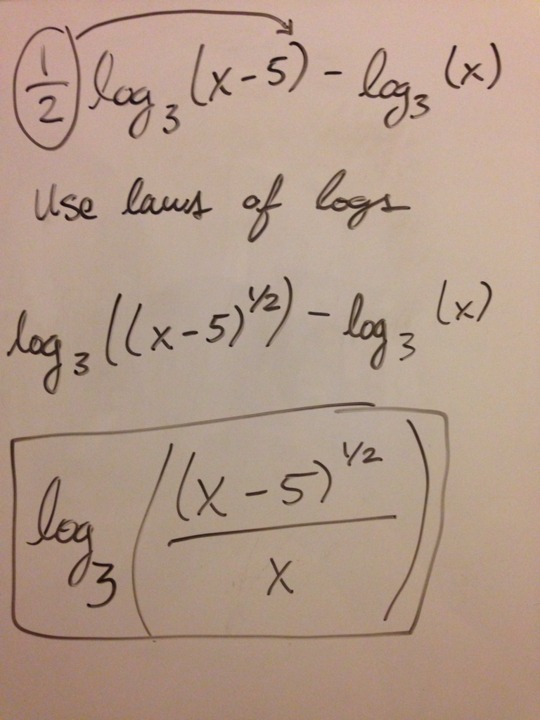 1/2 log₃(x-5) - log₃(x)
Use laws of logs
log₃((x-5)^1/2) - log₃(x)
log₃((x-5)^1/2 / x)